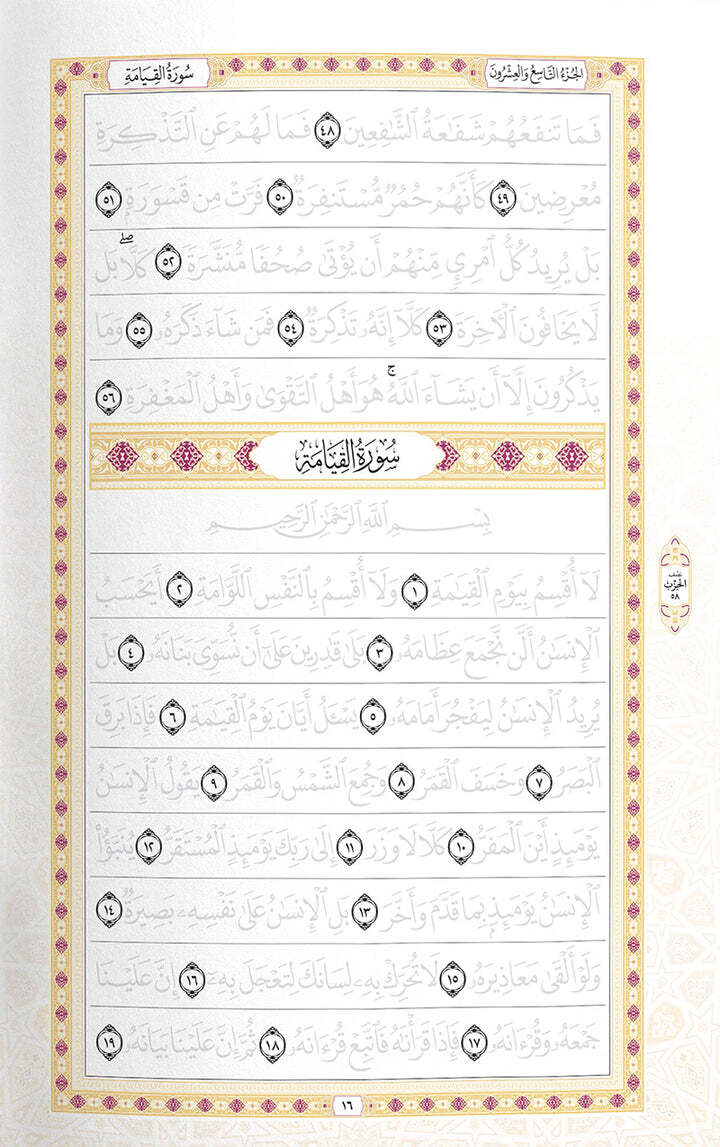 الجُزْءُ التَّاسِعُ وَالعِشْرُونَ
سُورَةُ القِيَامَةِ
فَمَا تَنفَعُهُمْ شَفَٰعَةُ ٱلشَّٰفِعِينَ ٤٨ فَمَا لَهُمْ عَنِ ٱلتَّذْكِرَةِ
مُعْرِضِينَ ٤٩ كَأَنَّهُمْ حُمُرٌ مُّسْتَنفِرَةٌ ٥٠ فَرَّتْ مِن قَسْوَرَةٍ ٥١
بَلْ يُرِيدُ كُلُّ ٱمْرِئٍ مِّنْهُمْ أَن يُؤْتَىٰ صُحُفًا مُّنَشَّرَةً ٥٢ كَلَّاۖ بَل
لَّا يَخَافُونَ ٱلْأٓخِرَةَ ٥٣ كَلَّآ إِنَّهُۥ تَذْكِرَةٌ ٥٤ فَمَن شَآءَ ذَكَرَهُۥ ٥٥ وَمَا
يَذْكُرُونَ إِلَّآ أَن يَشَآءَ ٱللَّهُۚ هُوَ أَهْلُ ٱلتَّقْوَىٰ وَأَهْلُ ٱلْمَغْفِرَةِ ٥٦
سُورَةُ القِيَامَةِ
بِسْمِ ٱللَّهِ ٱلرَّحْمَٰنِ ٱلرَّحِيمِ
لَآ أُقْسِمُ بِيَوْمِ ٱلْقِيَٰمَةِ ١ وَلَآ أُقْسِمُ بِٱلنَّفْسِ ٱللَّوَّامَةِ ٢ أَيَحْسَبُ
ٱلْإِنسَٰنُ أَلَّن نَّجْمَعَ عِظَامَهُۥ ٣ بَلَىٰ قَٰدِرِينَ عَلَىٰٓ أَن نُّسَوِّيَ بَنَانَهُۥ ٤ بَلْ
يُرِيدُ ٱلْإِنسَٰنُ لِيَفْجُرَ أَمَامَهُۥ ٥ يَسْـَٔلُ أَيَّانَ يَوْمُ ٱلْقِيَٰمَةِ ٦ فَإِذَا بَرِقَ
ٱلْبَصَرُ ٧ وَخَسَفَ ٱلْقَمَرُ ٨ وَجُمِعَ ٱلشَّمْسُ وَٱلْقَمَرُ ٩ يَقُولُ ٱلْإِنسَٰنُ
يَوْمَئِذٍ أَيْنَ ٱلْمَفَرُّ ١٠ كَلَّا لَا وَزَرَ ١١ إِلَىٰ رَبِّكَ يَوْمَئِذٍ ٱلْمُسْتَقَرُّ ١٢ يُنَبَّؤُاْ
ٱلْإِنسَٰنُ يَوْمَئِذٍۭ بِمَا قَدَّمَ وَأَخَّرَ ١٣ بَلِ ٱلْإِنسَٰنُ عَلَىٰ نَفْسِهِۦ بَصِيرَةٌ ١٤
وَلَوْ أَلْقَىٰ مَعَاذِيرَهُۥ ١٥ لَا تُحَرِّكْ بِهِۦ لِسَانَكَ لِتَعْجَلَ بِهِۦٓ ١٦ إِنَّ عَلَيْنَا
جَمْعَهُۥ وَقُرْءَانَهُۥ ١٧ فَإِذَا قَرَأْنَٰهُ فَٱتَّبِعْ قُرْءَانَهُۥ ١٨ ثُمَّ إِنَّ عَلَيْنَا بَيَانَهُۥ ١٩
نِصْف
الحِزْب
٥٨
١٦